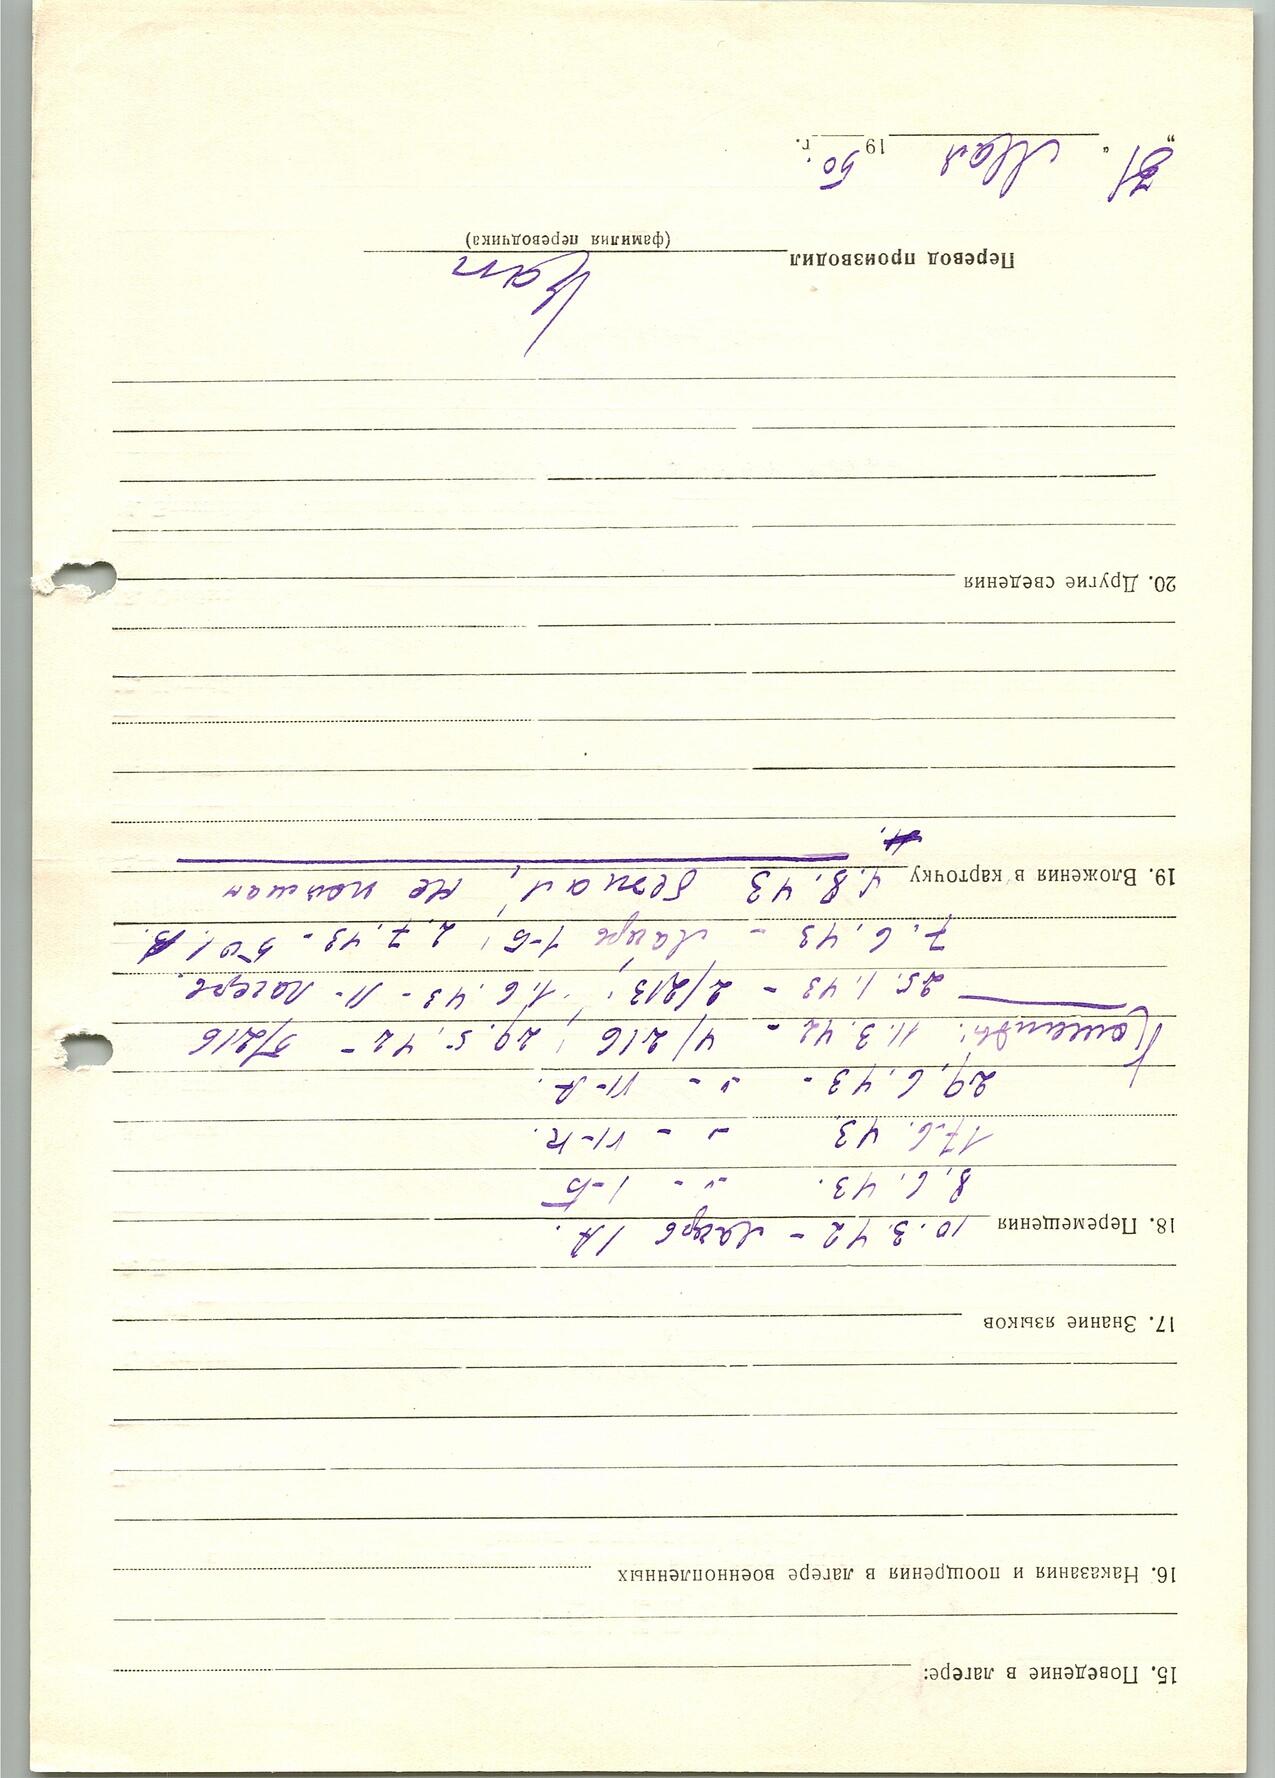 15. Поведение в лагере:
16. Наказания и поощрения в лагере военнопленных
17. Знание языков
18. Перемещения 10.3.42 - лагерь IA.
8.6.43. -"- I-Б
17.6.43 -"- VI-К.
29.6.43 - -"- VI-А.
Команды: 11.3.42 - 4/216; 29.5.42 - 5/216
25.1.43 - 2/213; 1.6.43 - II - лагере.
7.6.43 - лагерь I-Б; 2.7.43 - 501.В.
19. Вложения в карточку 4.8.43 бежал, не пойман
20. Другие сведения
Перевод производил
(фамилия переводчика)
„31“ Мая 1950 г.